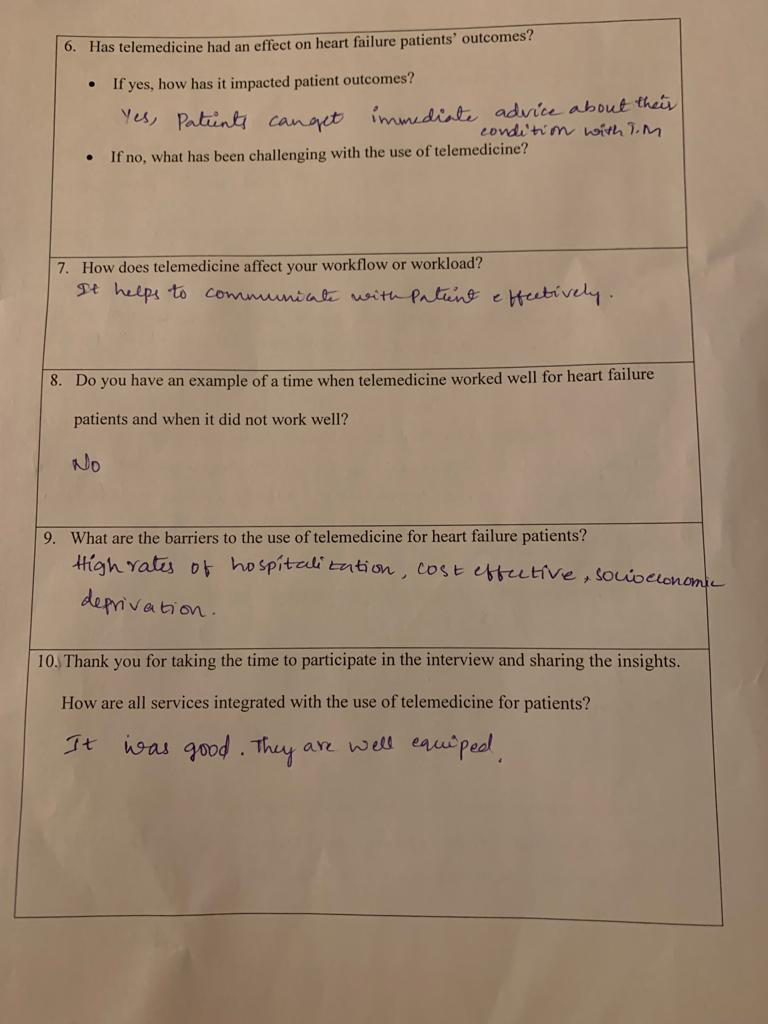 6. Has telemedicine had an effect on heart failure patients' outcomes?
• If yes, how has it impacted patient outcomes?
Yes, Patients can get immediate advice about their
condition with T.M
• If no, what has been challenging with the use of telemedicine?
7. How does telemedicine affect your workflow or workload?
It helps to communicate with Patient effectively.
8. Do you have an example of a time when telemedicine worked well for heart failure
patients and when it did not work well?
No
9. What are the barriers to the use of telemedicine for heart failure patients?
High rates of hospitalization, cost effective, socioeconomic
deprivation.
10. Thank you for taking the time to participate in the interview and sharing the insights.
How are all services integrated with the use of telemedicine for patients?
It was good. They are well equiped.